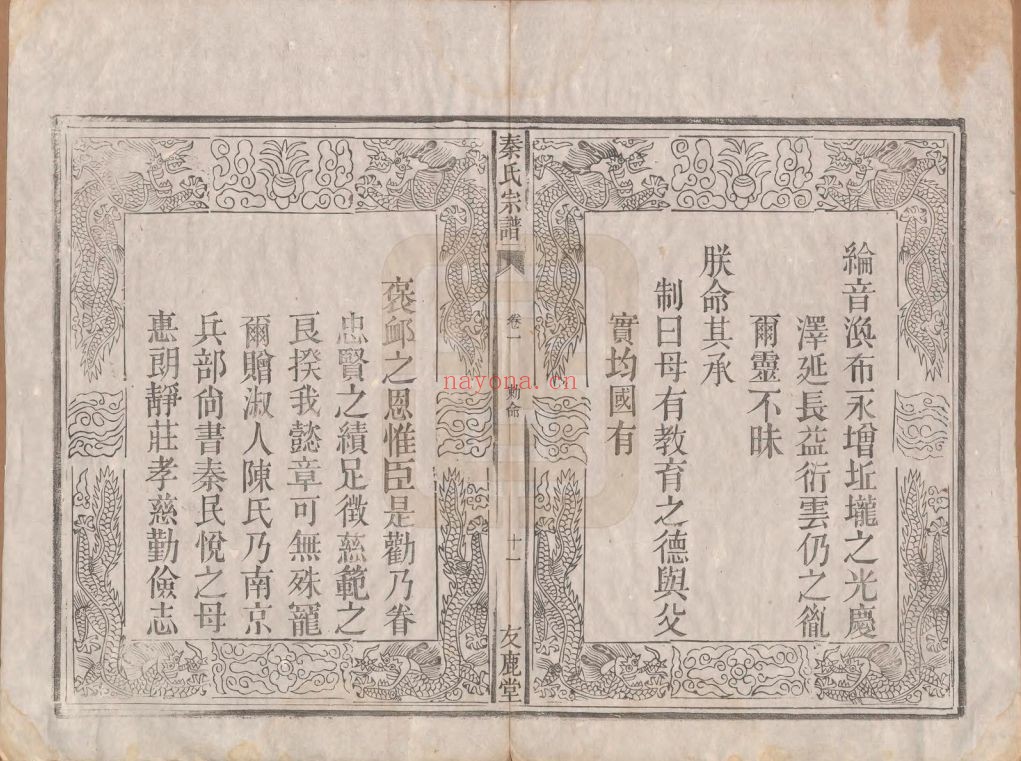 綸音渙布永增坵壠之光慶
澤延長益衍雲仍之胤
爾靈不昧
朕命其承
制曰母有教育之德與父
實均國有
秦氏宗譜
卷一
勅命
十一
友鹿堂
褒卹之恩惟臣是勸乃眷
忠賢之績足徵慈範之
良揆我懿章可無殊寵
爾贈淑人陳氏乃南京
兵部尚書秦民悅之母
惠朗靜莊孝慈勤儉志
nayona.cn